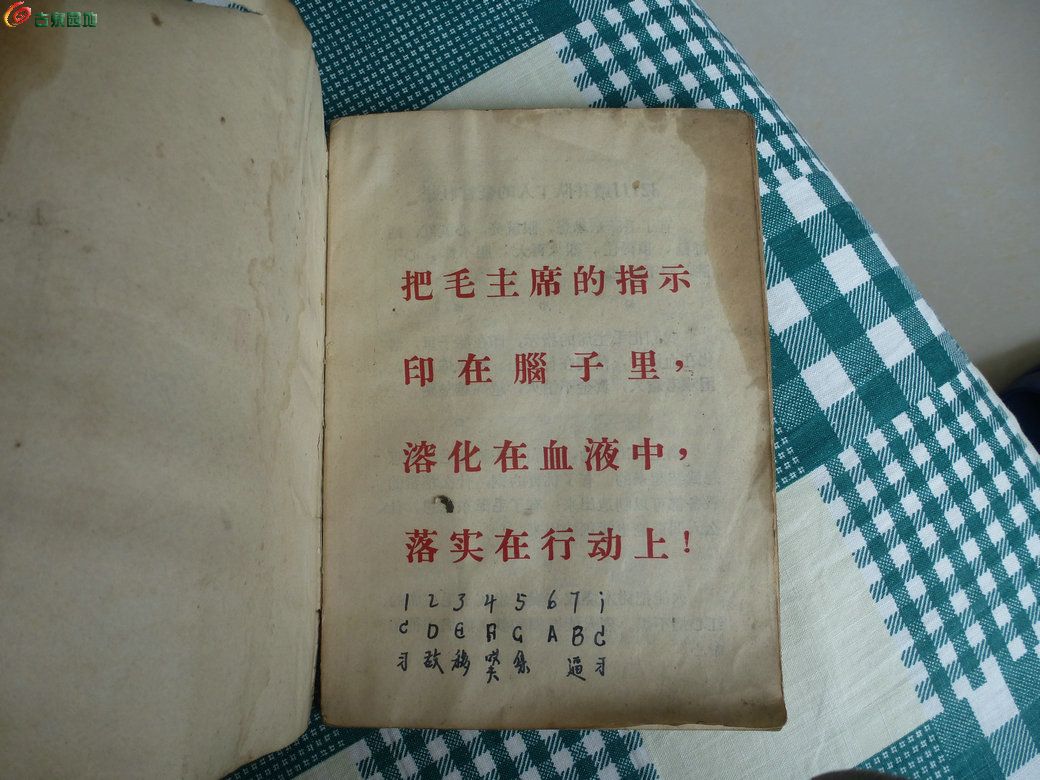 古泉园地
把毛主席的指示
印在腦子里，
溶化在血液中，
落实在行动上！
1 2 3 4 5 6 7 i
C D E A G A B C
习 敌 移 集 逼 习